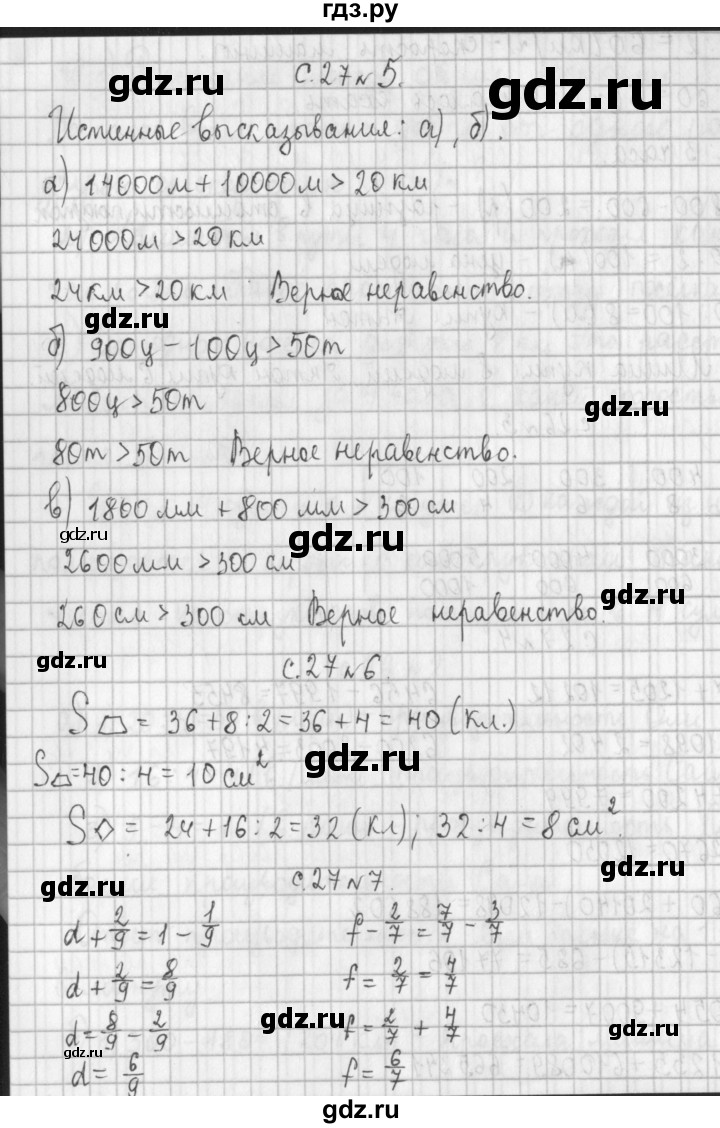 гдз.ру
gdz.ru
gdz.ru
с.27 № 5.
Истинные высказывания: а), б).
gdz.ru
а) 14000м + 10000м > 20 км
24000м > 20 км
gdz.ru
24 км > 20 км Верное неравенство.
gdz.ru
б) 900ц – 100ц > 50т
800ц > 50т
gdz.ru
80т > 50т Верное неравенство.
в) 1800 мм + 800 мм > 300 см
gdz.ru
gdz.ru
2600мм > 300 см
gdz.ru
260 см > 300 см Верное неравенство.
gdz.ru
с.27 № 6.
S⏢ = 36 + 8 : 2 = 36 + 4 = 40 (кл.)
gdz.ru
S⏢ = 40 : 4 = 10 см²
S◇ = 24 + 16 : 2 = 32 (кл); 32 : 4 = 8 см².
gdz.ru
gdz.ru
с.27 № 7.
d + 2/9 = 1 – 1/9 f – 2/7 = 7/7 – 3/7
d + 2/9 = 8/9 f = 2/7 = 4/7
gdz.ru
d = 8/9 – 2/9 f = 2/7 + 4/7
gdz.ru
gdz.ru
d = 6/9 f = 6/7
gdz.ru